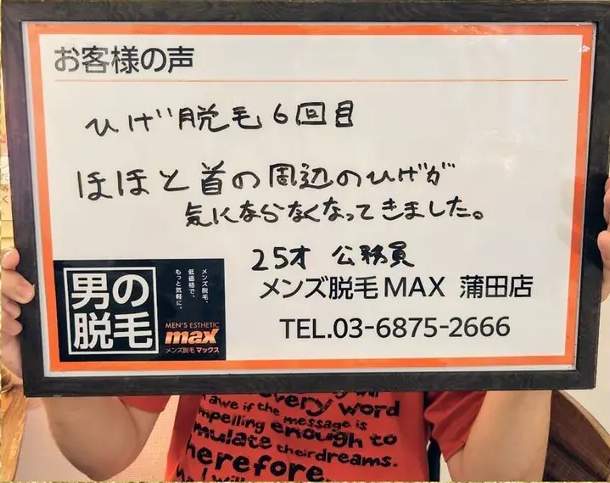 お客様の声
ひげ脱毛6回目
ほほと首の周辺のひげが
気にならなくなってきました。
25才 公務員
メンズ脱毛MAX 蒲田店
TEL.03-6875-2666
男の
脱毛
メンズ脱毛、
低価格で、
もっと気軽に。
MEN'S ESTHETIC
max
メンズ脱毛マックス
every word
awe if the message is
mpelling enough to
mulate theirdreams.
herefore,
I will